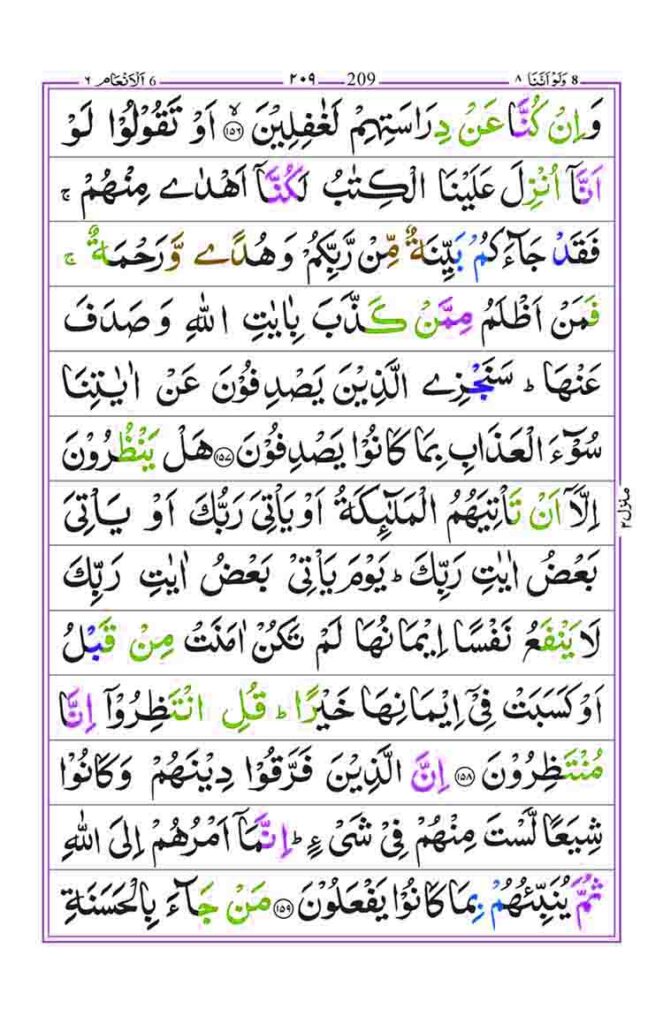 8 وَلَوْ اَنَّنَا ٨ 209 ٢٠٩ 6 اَلْاَنْعَام ٦
وَاِنْ كُنَّا عَنْ دِرَاسَتِهِمْ لَغٰفِلِيْنَ ۙ‏﴿۱۵۶﴾ اَوْ تَقُوْلُوْا لَوْ
اَنَّاۤ اُنْزِلَ عَلَيْنَا الْكِتٰبُ لَكُنَّاۤ اَهْدٰے مِنْهُمْ ۚ
فَقَدْ جَآءَكُمْ بَيِّنَةٌ مِّنْ رَّبِّكُمْ وَهُدًے وَّرَحْمَةٌ ۚ
فَمَنْ اَظْلَمُ مِمَّنْ كَذَّبَ بِاٰيٰتِ اللّٰهِ وَصَدَفَ
عَنْهَا ؕ سَنَجْزِے الَّذِيْنَ يَصْدِفُوْنَ عَنْ اٰيٰتِنَا
سُوْٓءَ الْعَذَابِ بِمَا كَانُوْا يَصْدِفُوْنَ ﴿۱۵۷﴾ هَلْ يَنْظُرُوْنَ
اِلَّاۤ اَنْ تَاْتِيَهُمُ الْمَلٰٓئِكَةُ اَوْ يَاْتِيَ رَبُّكَ اَوْ يَاْتِيَ
بَعْضُ اٰيٰتِ رَبِّكَ ؕ يَوْمَ يَاْتِيْ بَعْضُ اٰيٰتِ رَبِّكَ
لَا يَنْفَعُ نَفْسًا اِيْمَانُهَا لَمْ تَكُنْ اٰمَنَتْ مِنْ قَبْلُ
اَوْ كَسَبَتْ فِيْۤ اِيْمَانِهَا خَيْرًا ؕ قُلِ انْتَظِرُوْۤا اِنَّا
مُنْتَظِرُوْنَ ﴿۱۵۸﴾ اِنَّ الَّذِيْنَ فَرَّقُوْا دِيْنَهُمْ وَكَانُوْا
شِيَعًا لَّسْتَ مِنْهُمْ فِيْ شَيْءٍ ؕ اِنَّمَاۤ اَمْرُهُمْ اِلَى اللّٰهِ
ثُمَّ يُنَبِّئُهُمْ بِمَا كَانُوْا يَفْعَلُوْنَ ﴿۱۵۹﴾ مَنْ جَآءَ بِالْحَسَنَةِ
منزل ٢